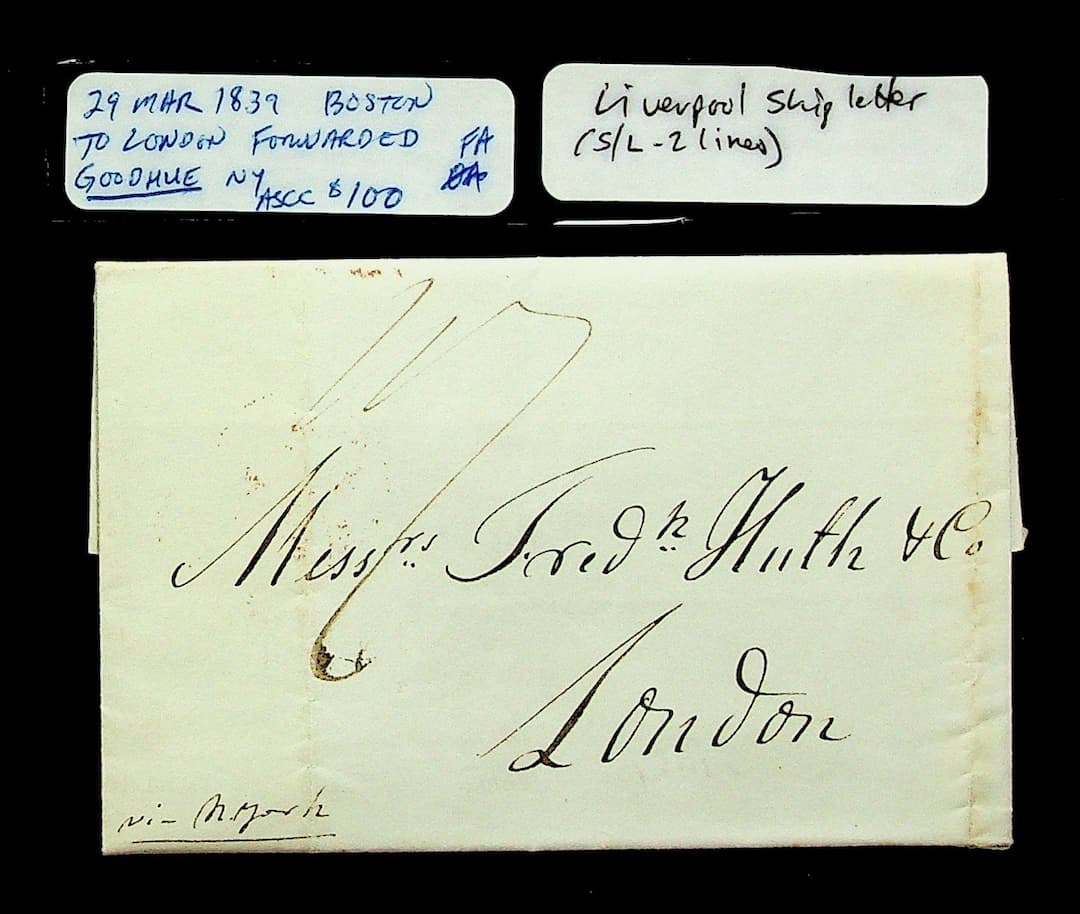 29 MAR 1839 BOSTON
TO LONDON FORWARDED FA
GOODHUE NY
ASCC $100
Liverpool Ship letter
(S/L - 2 lines)
Messrs. Fredk. Huth & Co.
London
via N.York